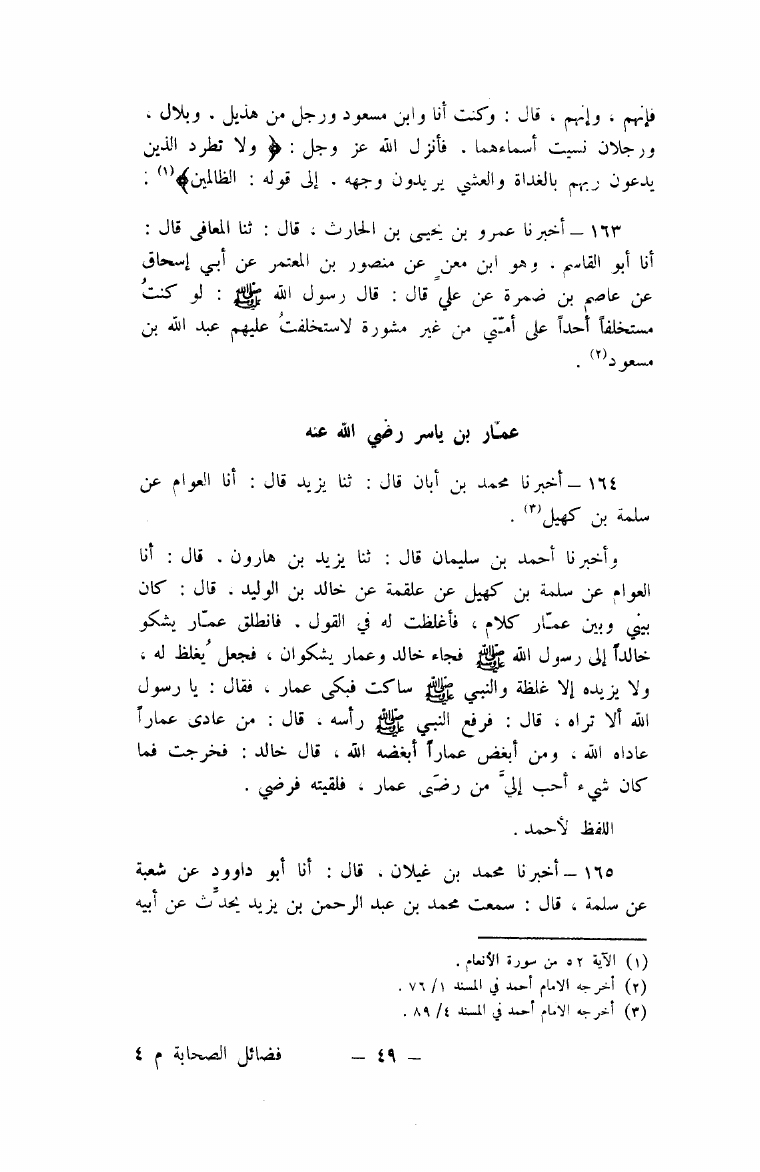 فإنهم ، وإنهم ، قال : وكنت أنا وابن مسعود ورجل من هذيل . وبلال ،
ورجلان نسيت أسماءهما . فأنزل الله عز وجل : ﴿ ولا تطرد الذين
يدعون ربهم بالغداة والعشي يريدون وجهه . إلى قوله : الظالمين﴾(١) :
١٦٣ – أخبرنا عمرو بن يحيى بن الحارث ، قال : ثنا المعافى قال :
أنا أبو القاسم . وهو ابن معنٍ عن منصور بن المعتمر عن أبي إسحاق
عن عاصم بن ضمرة عن علي قال : قال رسول الله ﷺ : لو كنتُ
مستخلفاً أحداً على أمتّي من غير مشورة لاستخلفتُ عليهم عبد الله بن
مسعود(٢) .
عمّار بن ياسر رضي الله عنه
١٦٤ – أخبرنا محمد بن أبان قال : ثنا يزيد قال : أنا العوام عن
سلمة بن كهيل(٣) .
وأخبرنا أحمد بن سليمان قال : ثنا يزيد بن هارون . قال : أنا
العوام عن سلمة بن كهيل عن علقمة عن خالد بن الوليد . قال : كان
بيني وبين عمّار كلام ، فأغلظت له في القول . فانطلق عمّار يشكو
خالداً إلى رسول الله ﷺ فجاء خالد وعمار يشكوان ، فجعل يُغلظ له ،
ولا يزيده إلا غلظة والنبي ﷺ ساكت فبكى عمار ، فقال : يا رسول
الله ألا تراه ، قال : فرفع النبي ﷺ رأسه . قال : من عادى عماراً
عاداه الله ، ومن أبغض عماراً أبغضه الله ، قال خالد : فخرجت فما
كان شيء أحب إليَّ من رضَى عمار ، فلقيته فرضي .
اللفظ لأحمد .
١٦٥ – أخبرنا محمد بن غيلان . قال : أنا أبو داوود عن شعبة
عن سلمة ، قال : سمعت محمد بن عبد الرحمن بن يزيد يحدَّث عن أبيه
(١) الآية ٥٢ من سورة الأنعام .
(٢) أخرجه الامام أحمد في المسند ١/ ٧٦ .
(٣) أخرجه الامام أحمد في المسند ٤/ ٨٩ .
– ٤٩ – فضائل الصحابة م ٤